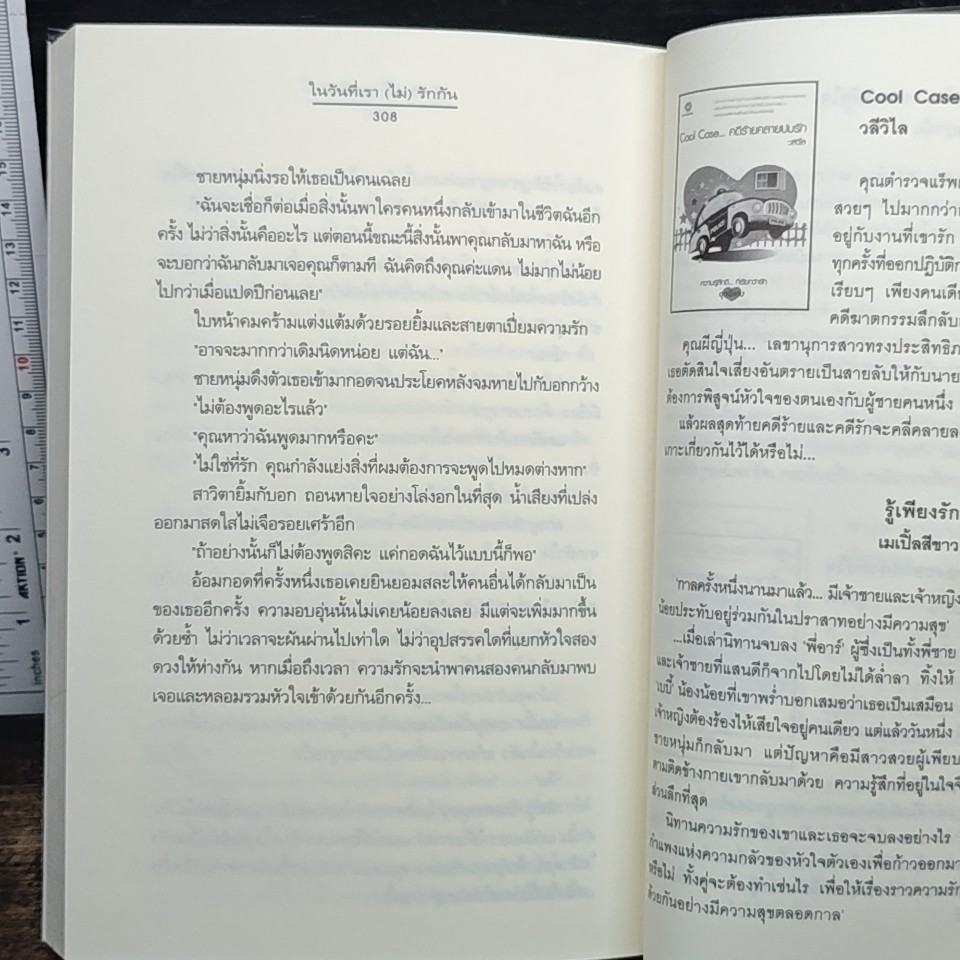 ในวันที่เรา (ไม่) รักกัน
308
ชายหนุ่มนิ่งรอให้เธอเป็นคนเฉลย
"ฉันจะเชื่อก็ต่อเมื่อสิ่งนั้นพาใครคนหนึ่งกลับเข้ามาในชีวิตฉันอีก
ครั้ง ไม่ว่าสิ่งนั้นคืออะไร แต่ตอนนี้ขณะนี้สิ่งนั้นพาคุณกลับมาหาฉัน หรือ
จะบอกว่าฉันกลับมาเจอคุณก็ตามที ฉันคิดถึงคุณค่ะแดน ไม่มากไม่น้อย
ไปกว่าเมื่อแปดปีก่อนเลย"
ใบหน้าคมคร้ามแต่งแต้มด้วยรอยยิ้มและสายตาเปี่ยมความรัก
"อาจจะมากกว่าเดิมนิดหน่อย แต่ฉัน..."
ชายหนุ่มดึงตัวเธอเข้ามากอดจนประโยคหลังจมหายไปกับอกกว้าง
"ไม่ต้องพูดอะไรแล้ว"
"คุณหาว่าฉันพูดมากหรือคะ"
"ไม่ใช่ที่รัก คุณกำลังแย่งสิ่งที่ผมต้องการจะพูดไปหมดต่างหาก"
สาวิตายิ้มกับอก ถอนหายใจอย่างโล่งอกในที่สุด น้ำเสียงที่เปล่ง
ออกมาสดใสไม่เจือรอยเศร้าอีก
"ถ้าอย่างนั้นก็ไม่ต้องพูดสิคะ แค่กอดฉันไว้แบบนี้ก็พอ"
อ้อมกอดที่ครั้งหนึ่งเธอเคยยินยอมสละให้คนอื่นได้กลับมาเป็น
ของเธออีกครั้ง ความอบอุ่นนั้นไม่เคยน้อยลงเลย มีแต่จะเพิ่มมากขึ้น
ด้วยซ้ำ ไม่ว่าเวลาจะผันผ่านไปเท่าใด ไม่ว่าอุปสรรคใดที่แยกหัวใจสอง
ดวงให้ห่างกัน หากเมื่อถึงเวลา ความรักจะนำพาคนสองคนกลับมาพบ
เจอและหลอมรวมหัวใจเข้าด้วยกันอีกครั้ง...
Cool Case... คดีร้ายคลายปมรัก
วลีวิไล
Cool Case
วลีวิไล
คุณตำรวจแร็พเ
สวยๆ ไปมากกว่าก
อยู่กับงานที่เขารัก
ทุกครั้งที่ออกปฏิบัติก
เรียบๆ เพียงคนเดีย
คดีฆาตกรรมลึกลับเ
คุณผีญี่ปุ่น... เลขานุการสาวทรงประสิทธิภ
เธอตัดสินใจเสี่ยงอันตรายเป็นสายลับให้กับนาย
ต้องการพิสูจน์หัวใจของตนเองกับผู้ชายคนหนึ่ง
แล้วผลสุดท้ายคดีร้ายและคดีรักจะคลี่คลายล
เกาะเกี่ยวกันไว้ได้หรือไม่...
รู้เพียงรัก
เมเปิ้ลสีขาว
'กาลครั้งหนึ่งนานมาแล้ว... มีเจ้าชายและเจ้าหญิง
น้อยประทับอยู่ร่วมกันในปราสาทอย่างมีความสุข'
...เมื่อเล่านิทานจบลง 'พี่อาร์' ผู้ซึ่งเป็นทั้งพี่ชาย
และเจ้าชายที่แสนดีก็จากไปโดยไม่ได้ล่ำลา ทิ้งให้
'เบบี้' น้องน้อยที่เขาพร่ำบอกเสมอว่าเธอเป็นเสมือน
เจ้าหญิงต้องร้องไห้เสียใจอยู่คนเดียว แต่แล้ววันหนึ่ง
ชายหนุ่มก็กลับมา แต่ปัญหาคือมีสาวสวยผู้เพียบ
ตามติดข้างกายเขากลับมาด้วย ความรู้สึกที่อยู่ในใจจึ
ส่วนลึกที่สุด
นิทานความรักของเขาและเธอจะจบลงอย่างไร
กำแพงแห่งความกลัวของหัวใจตัวเองเพื่อก้าวออกมา
หรือไม่ ทั้งคู่จะต้องทำเช่นไร เพื่อให้เรื่องราวความรัก
ด้วยกันอย่างมีความสุขตลอดกาล'
inches 1 AKTION 2 3
5 6 7 8 9 10 11 12 13 14 15